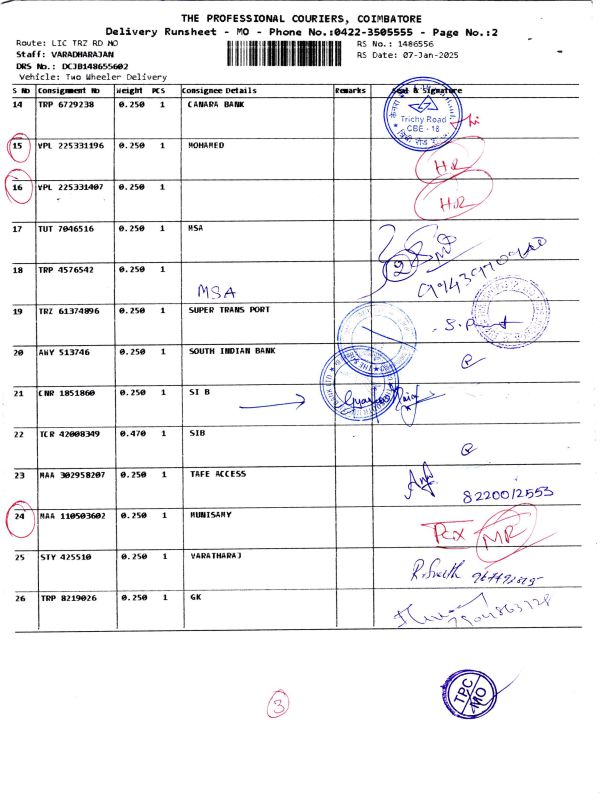 THE PROFESSIONAL COURIERS, COIMBATORE
Delivery Runsheet - MO - Phone No.:0422-3505555 - Page No.:2
Route: LIC TRZ RD MO
RS No.: 1486556
Staff: VARADHARAJAN
RS Date: 07-Jan-2025
DRS No.: DCJB148655602
Vehicle: Two Wheeler Delivery
S No Consignment No Weight PCS Consignee Details Remarks Seal & Signature
14 TRP 6729238 0.250 1 CANARA BANK
Trichy Road
CBE - 18
15 VPL 225331196 0.250 1 MOHAMED
HR
16 VPL 225331407 0.250 1
HR
17 TUT 7046516 0.250 1 MSA
2
18 TRP 4576542 0.250 1
MSA
19 TRZ 61374896 0.250 1 SUPER TRANS PORT
20 AWY 513746 0.250 1 SOUTH INDIAN BANK
21 CNR 1851860 0.250 1 SI B
22 TCR 42008349 0.470 1 SIB
23 MAA 302958207 0.250 1 TAFE ACCESS
8220012553
24 MAA 110503602 0.250 1 MUNISAMY
MR
25 STY 425510 0.250 1 VARATHARAJ
26 TRP 8219026 0.250 1 GK
3
TPC
MO